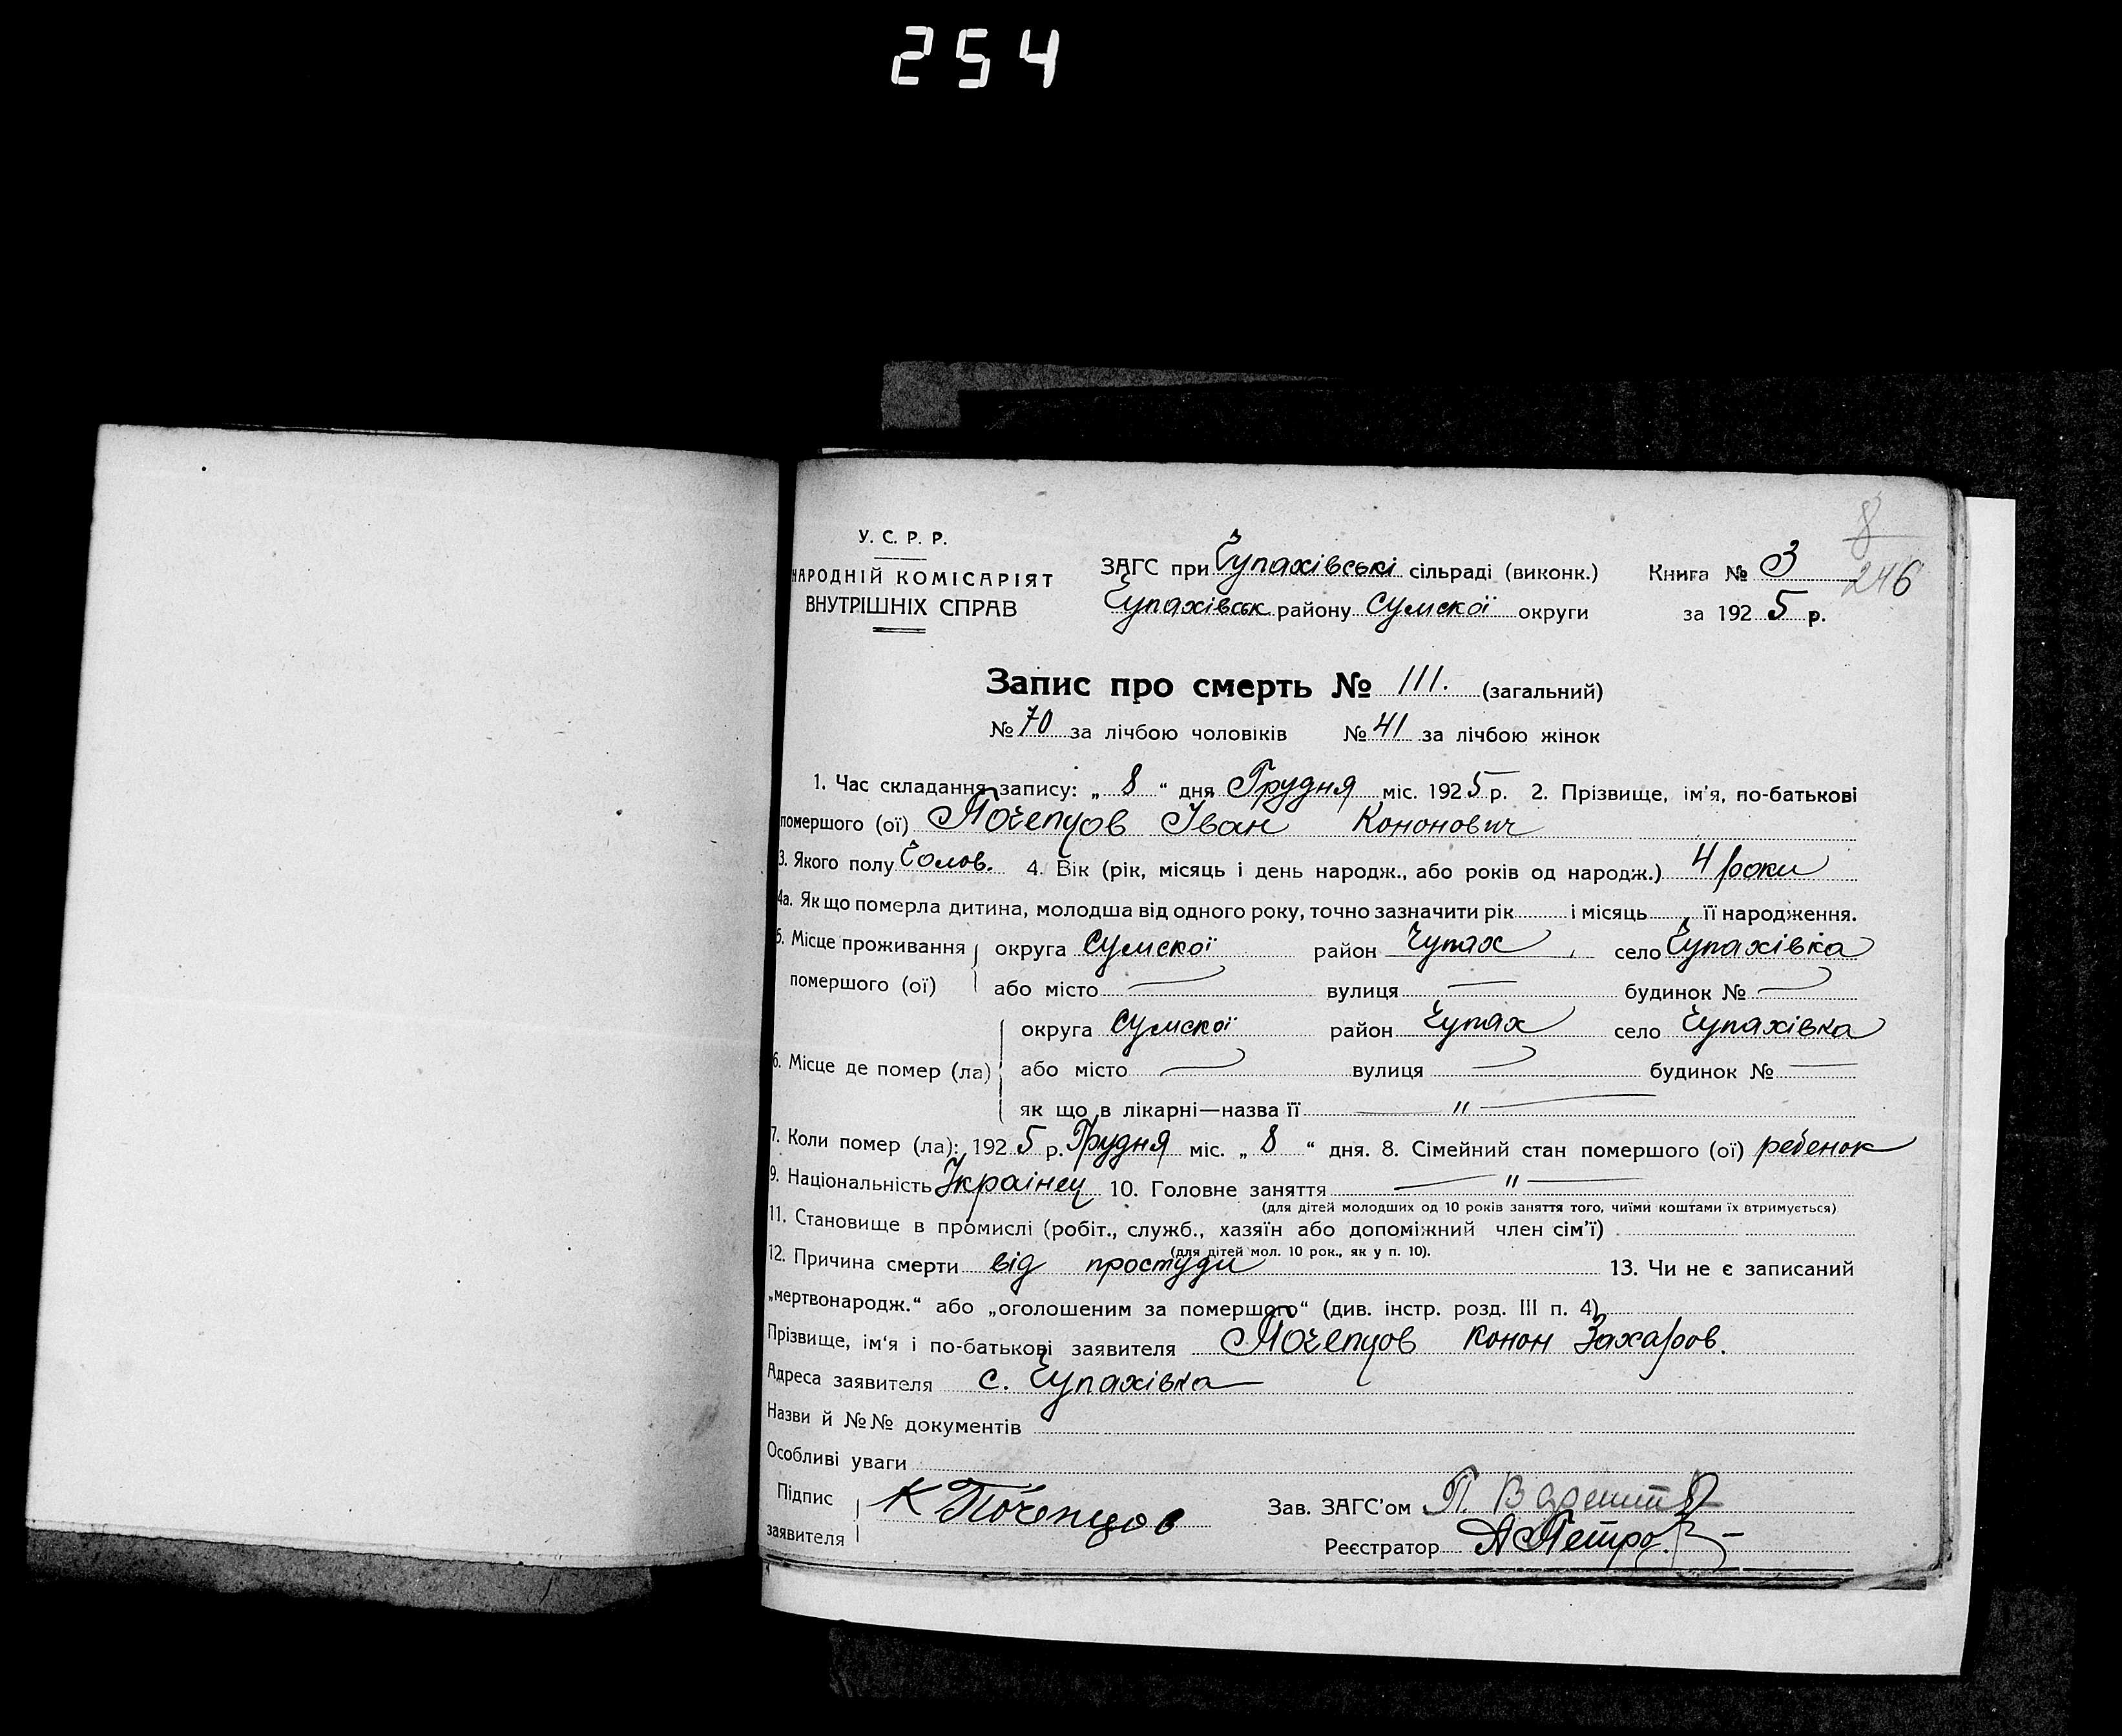 254
8
246
У. С. Р. Р.
НАРОДНІЙ КОМІСАРІЯТ
ВНУТРІШНІХ СПРАВ
ЗАГС при Чупахівські сільраді (виконк.) Книга № 3
Чупахівськ району Сумскої округи за 1925 р.
Запис про смерть № 111. (загальний)
№ 70 за лічбою чоловіків № 41 за лічбою жінок
1. Час складання запису: „ 8 “ дня Грудня міс. 1925 р. 2. Прізвище, ім'я, по-батькові
помершого (ої) Почепцов Іван Кононович
3. Якого полу Чолов. 4. Вік (рік, місяць і день народж., або років од народж.) 4 роки
4а. Як що померла дитина, молодша від одного року, точно зазначити рік і місяць її народження.
5. Місце проживання округа Сумскої район Чупах село Чупахівка
помершого (ої) або місто — вулиця — будинок № —
округа Сумскої район Чупах село Чупахівка
6. Місце де помер (ла) або місто — вулиця — будинок № —
як що в лікарні—назва її — " —
7. Коли помер (ла): 1925 р. Грудня міс. „ 8 “ дня. 8. Сімейний стан помершого (ої) ребенок
9. Національність Українец 10. Головне заняття — " —
(для дітей молодших од 10 років заняття того, чиїми коштами їх втримується)
11. Становище в промислі (робіт., служб., хазяїн або допоміжний член сім'ї)
(для дітей мол. 10 рок., як у п. 10).
12. Причина смерти від простуди 13. Чи не є записаний
„мертвонародж.“ або „оголошеним за помершого“ (див. інстр. розд. III п. 4)
Прізвище, ім'я і по-батькові заявителя Почепцов Конон Захаров.
Адреса заявителя с. Чупахівка
Назви й №№ документів
Особливі уваги
Підпис заявителя К Почепцов Зав. ЗАГС'ом П.
Реєстратор А Петро